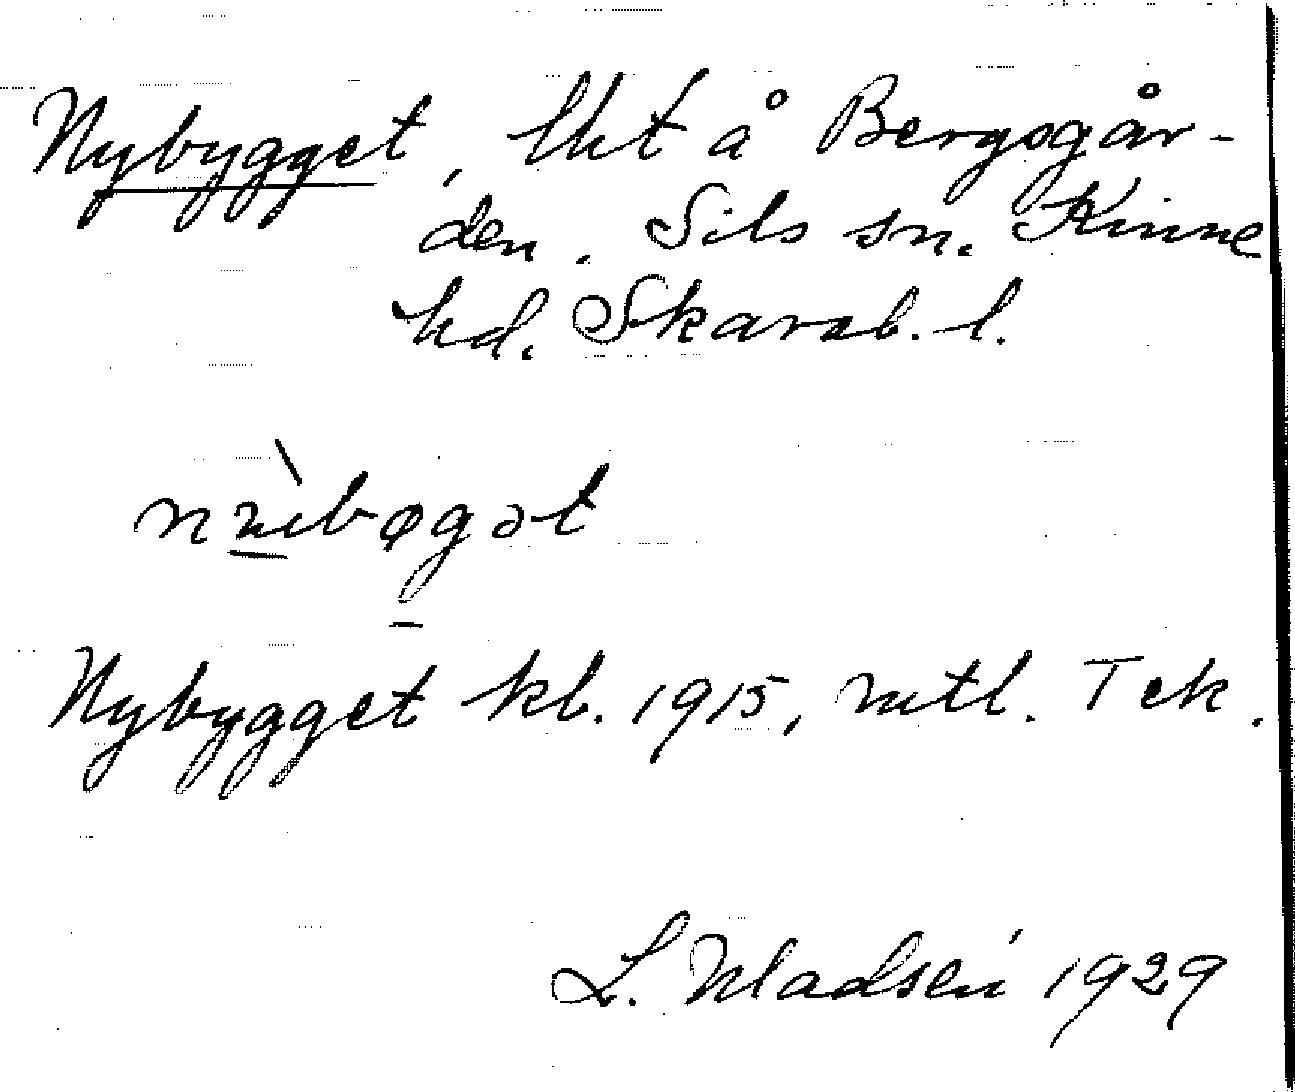 Nybygget, lht å Bergsgår-
den. Sils sn. Kinne
hd. Skarab. l.
Nybygget kb. 1915, mtl. Tek.
L. Madsén 1929